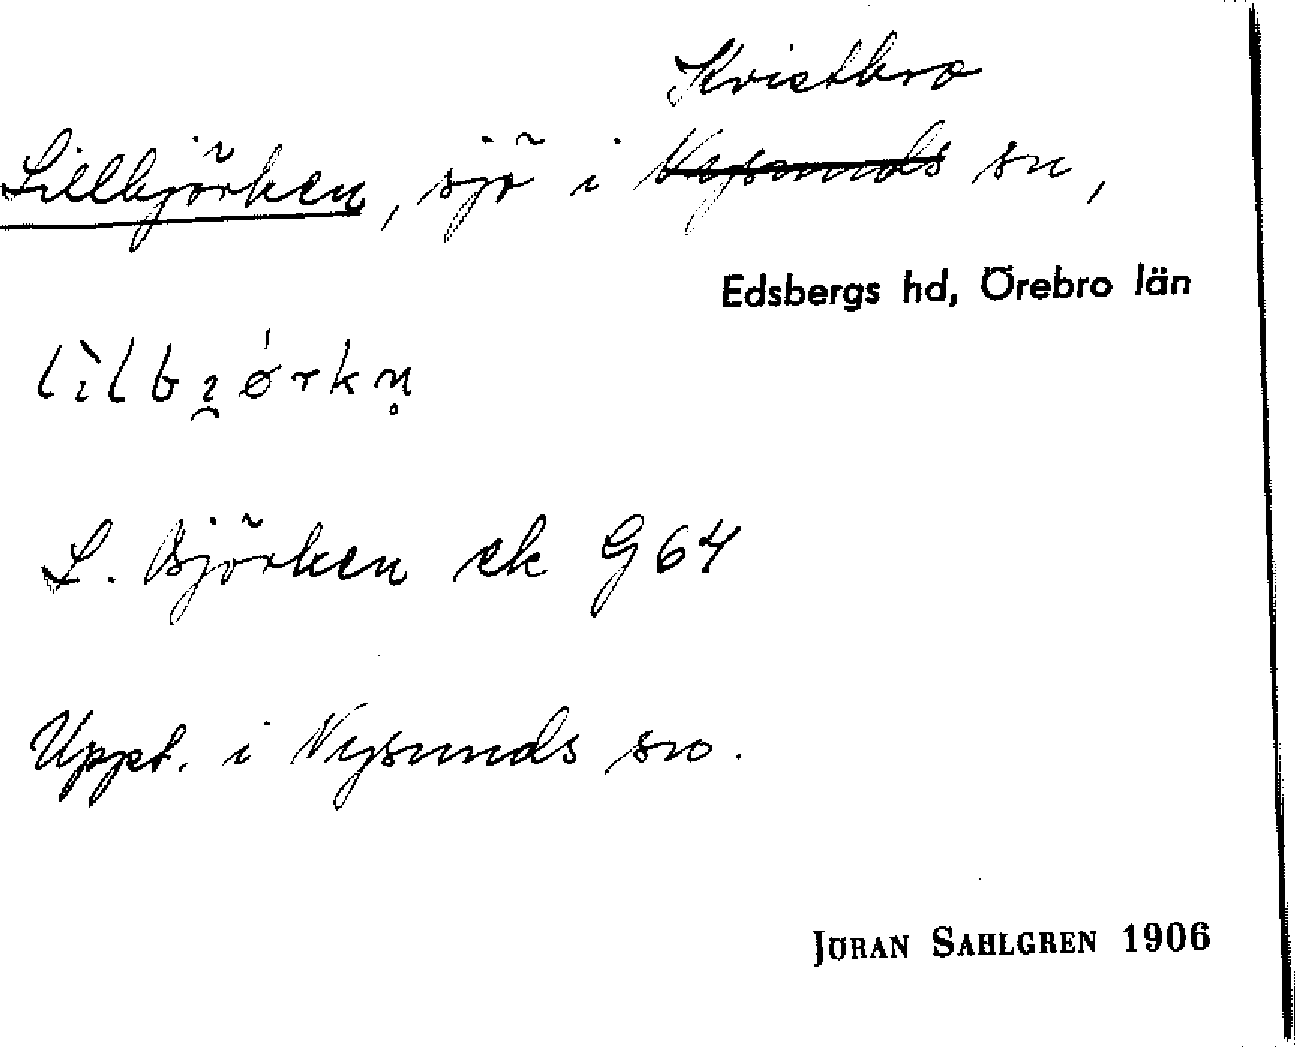 Kvistbro
Lillbjörken, sjö i Nysunds sn,
Edsbergs hd, Örebro län
L. Björken ek G64
Uppt. i Nysunds sn.
JÖRAN SAHLGREN 1906